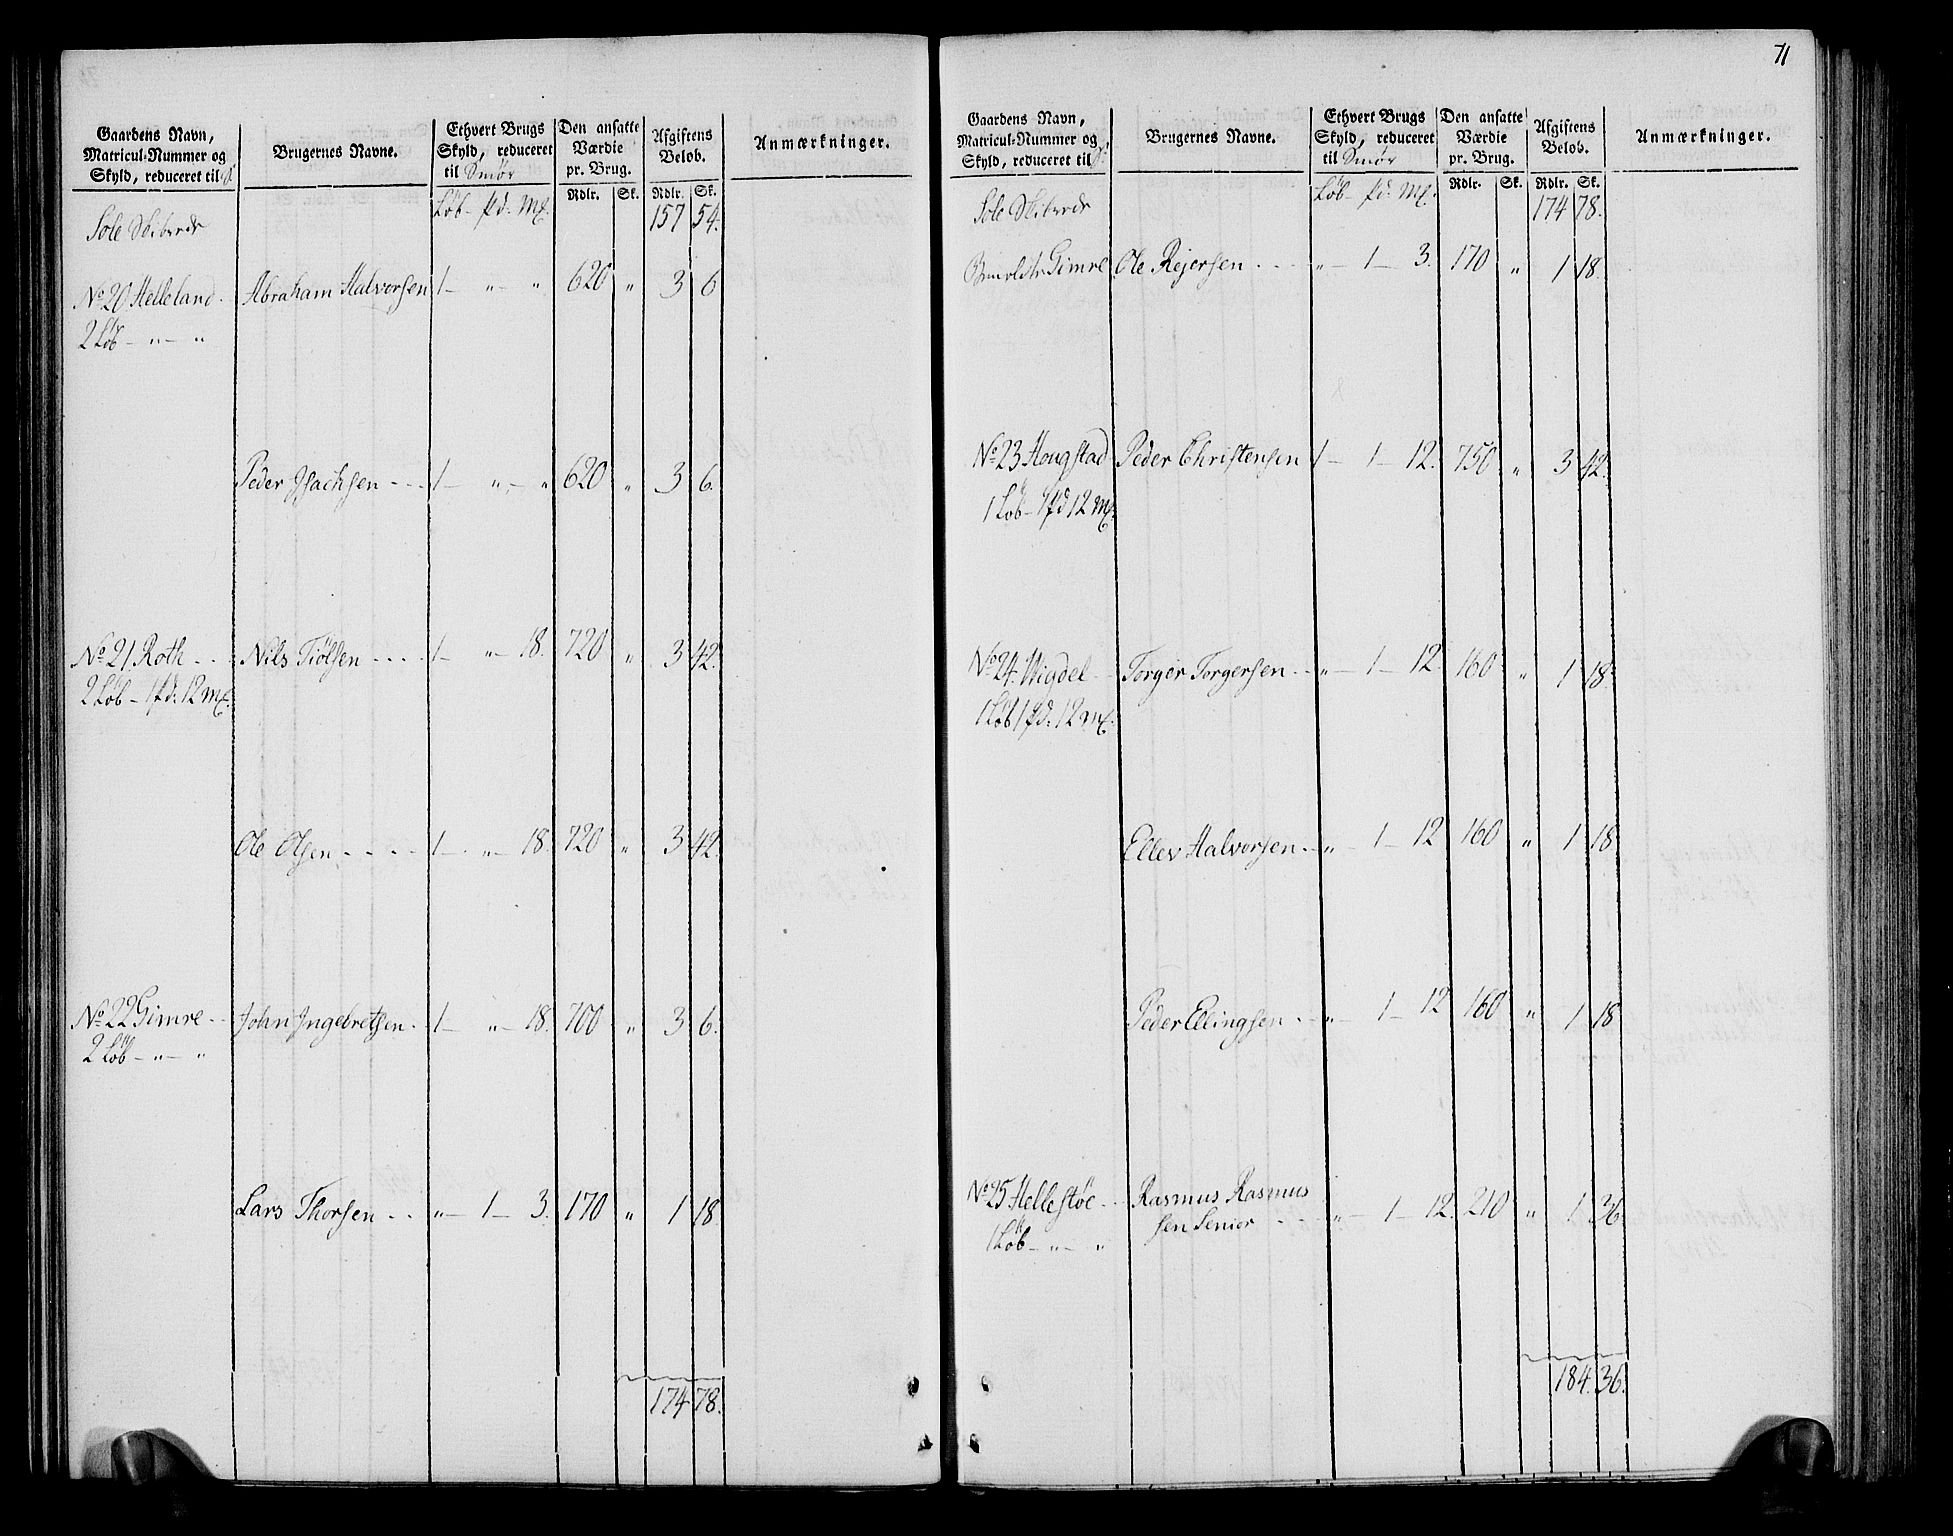 Gaardens Navn,
Matricul-Nummer og
Skyld, reduceret til S.
Brugernes Navne.
Ethvert Brugs
Skyld, reduceret
til Smør
Den ansatte
Værdie
pr. Brug.
Afgiftens
Beløb.
Anmærkninger.
Rdlr. Sk. Rdlr. Sk.
Sole Skibrede Løb - pd. Mf. 157 54.
No 20 Helleland Abraham Halvorsen 1 - " - " 620 " 3 6
2 Løb - " - "
Peder Isachsen - - - 1 - " - " 620 " 3 6.
No 21 Roth - - - Nils Tiølsen - - - - 1 - " - 18. 720 " 3 42.
2 Løb - 1 pd. 12 Mf.
Ole Olsen - - - - 1 - " - 18. 720 " 3 42.
No 22 Gimre - - John Ingebretsen - 1 - " - 18. 700 " 3 6.
2 Løb - " - "
Lars Thorsen - - " - 1 - 3. 170 " 1 18
174 78.
71
Gaardens Navn,
Matricul-Nummer og
Skyld, reduceret til S.
Brugernes Navne.
Ethvert Brugs
Skyld, reduceret
til Smør
Den ansatte
Værdie
pr. Brug.
Afgiftens
Beløb.
Anmærkninger.
Rdlr. Sk. Rdlr. Sk.
Sole Skibrede Løb - pd. Mf. 174 78.
Gimre Ole Rejersen - - - " - 1 - 3. 170 " 1 18.
No 23 Hougstad Peder Christensen 1 - 1 - 12. 750 " 3 42.
1 Løb - 1 pd 12 Mf.
No 24. Wigdel - - Torger Torgersen - - " - 1 - 12. 160 " 1 18.
1 Løb 1 pd. 12 Mf.
Ellev Halvorsen - " - 1 - 12 160 " 1 18
Peder Ellingsen - - " - 1 - 12 160 " 1 18
No 25 Hellestøe - - Rasmus Rasmus
sen Senior - - " - 1 - 12. 210 " 1 36
1 Løb - " - "
184. 36.